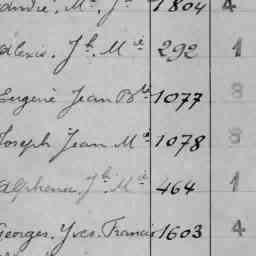 André, Mie, Jh 1804 4
Alexis, Jh, Mie 292 1
Eugène Jean Bte 1077 8
Joseph Jean Mie 1078 8
Alphonse, Jh Mie 464 1
Georges, Yves, Francis 1603 4